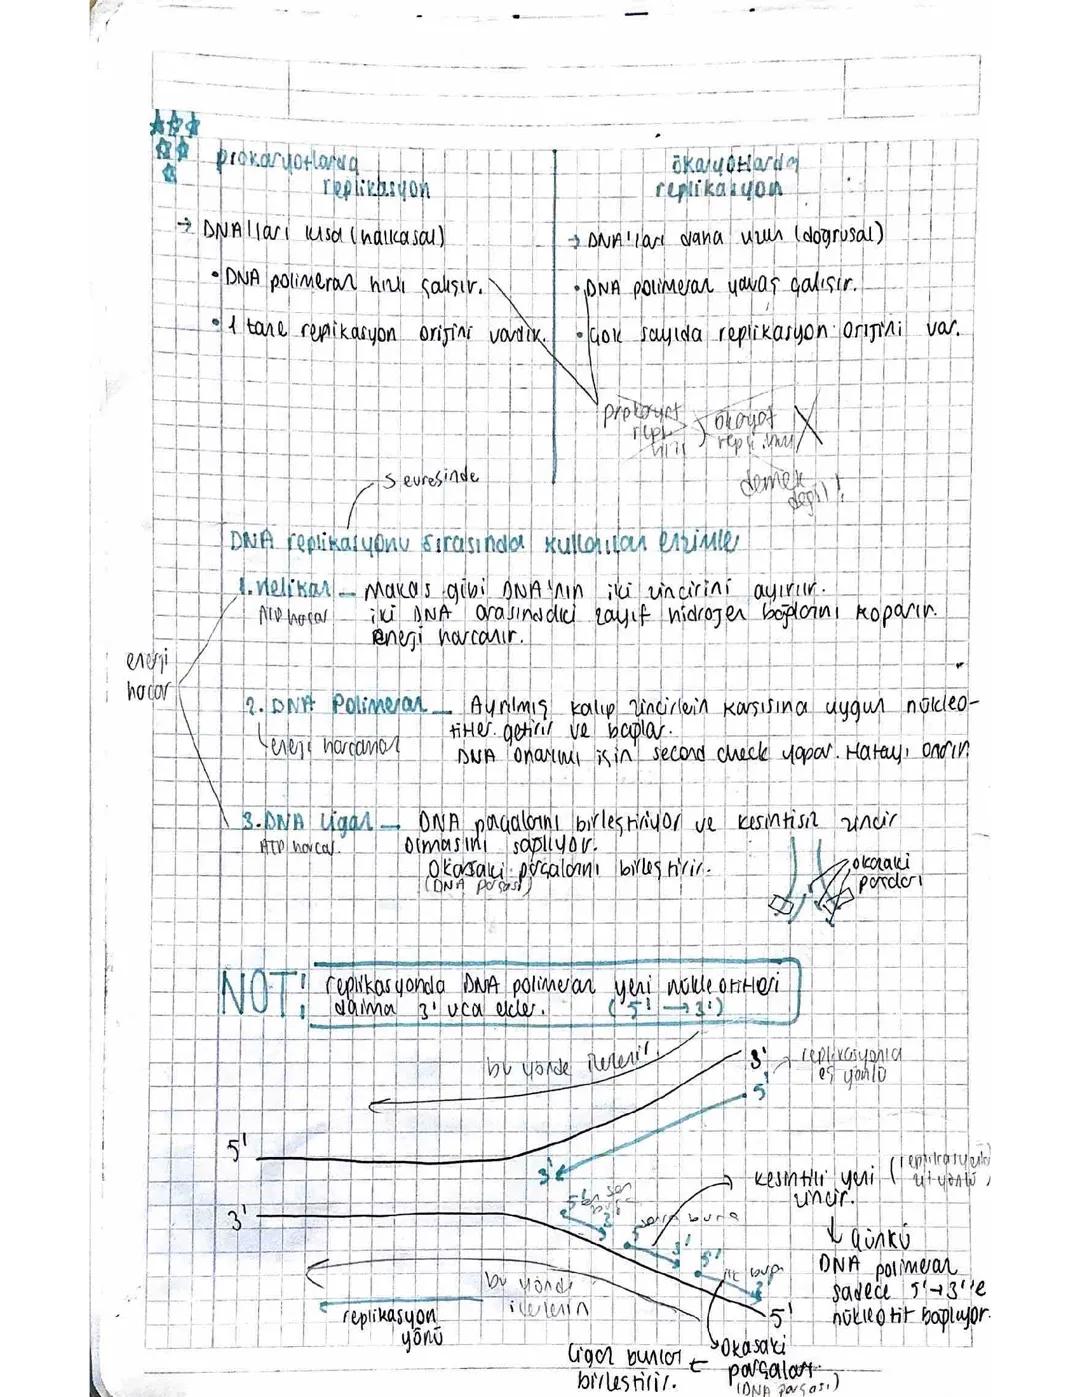 prokaryotlarda
replikasyon
ökaryotlarda
replikasyon
→ DNA'ları kısa (halkasal)
• DNA polimeraz hızlı çalışır.
• 1 tane replikasyon orijini vardır.
→ DNA'ları daha uzun (doğrusal)
• DNA polimeraz yavaş çalışır.
• Çok sayıda replikasyon orijini var.
prokaryot
repl.
hızlı
ökaryot
demek
değil!
S evresinde
DNA replikasyonu sırasında kullanılan enzimle
1. Helikaz – Makas gibi DNA'nın iki zincirini ayırır.
ATP harcar
iki DNA arasındaki zayıf hidrojen bağlarını koparır.
enerji harcanır.
enerji
harcar
2. DNA Polimeraz – Ayrılmış kalıp zincirlerin karşısına uygun nükleo-
titler getirir ve bağlar.
enerji harcamaz
DNA onarımı için second check yapar. Hatayı onarır.
3. DNA Ligaz – DNA parçalarını birleştiriyor ve kesintisiz zincir
ATP harcar.
olmasını sağlıyor.
Okazaki parçalarını birleştirir.
(DNA parçası)
okazaki
parçaları
NOT: replikasyonda DNA polimeraz yeni nükleotitleri
daima 3' uca ekler. (5' → 3')
bu yönde ilerler.
3'
replikasyonla
eş yönlü
5'
5'
3'
3'
kesintili yeni
zincir.
5'
3'
5'
sonra buna
3'
5'
ilk bura
3'
↓ çünkü
DNA polimeraz
sadece 5'→3''e
nükleotit bağlıyor.
bu yönde
ilerlerin
replikasyon
yönü
5'
Okazaki
parçaları
(DNA parçası)
Ligaz bunları
birleştirir.